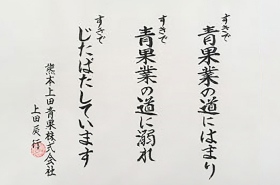 すきで
青果業の道にはまり
すきで
青果業の道に溺れ
すきで
じたばたしています
熊本上田青果株式会社
上田辰行